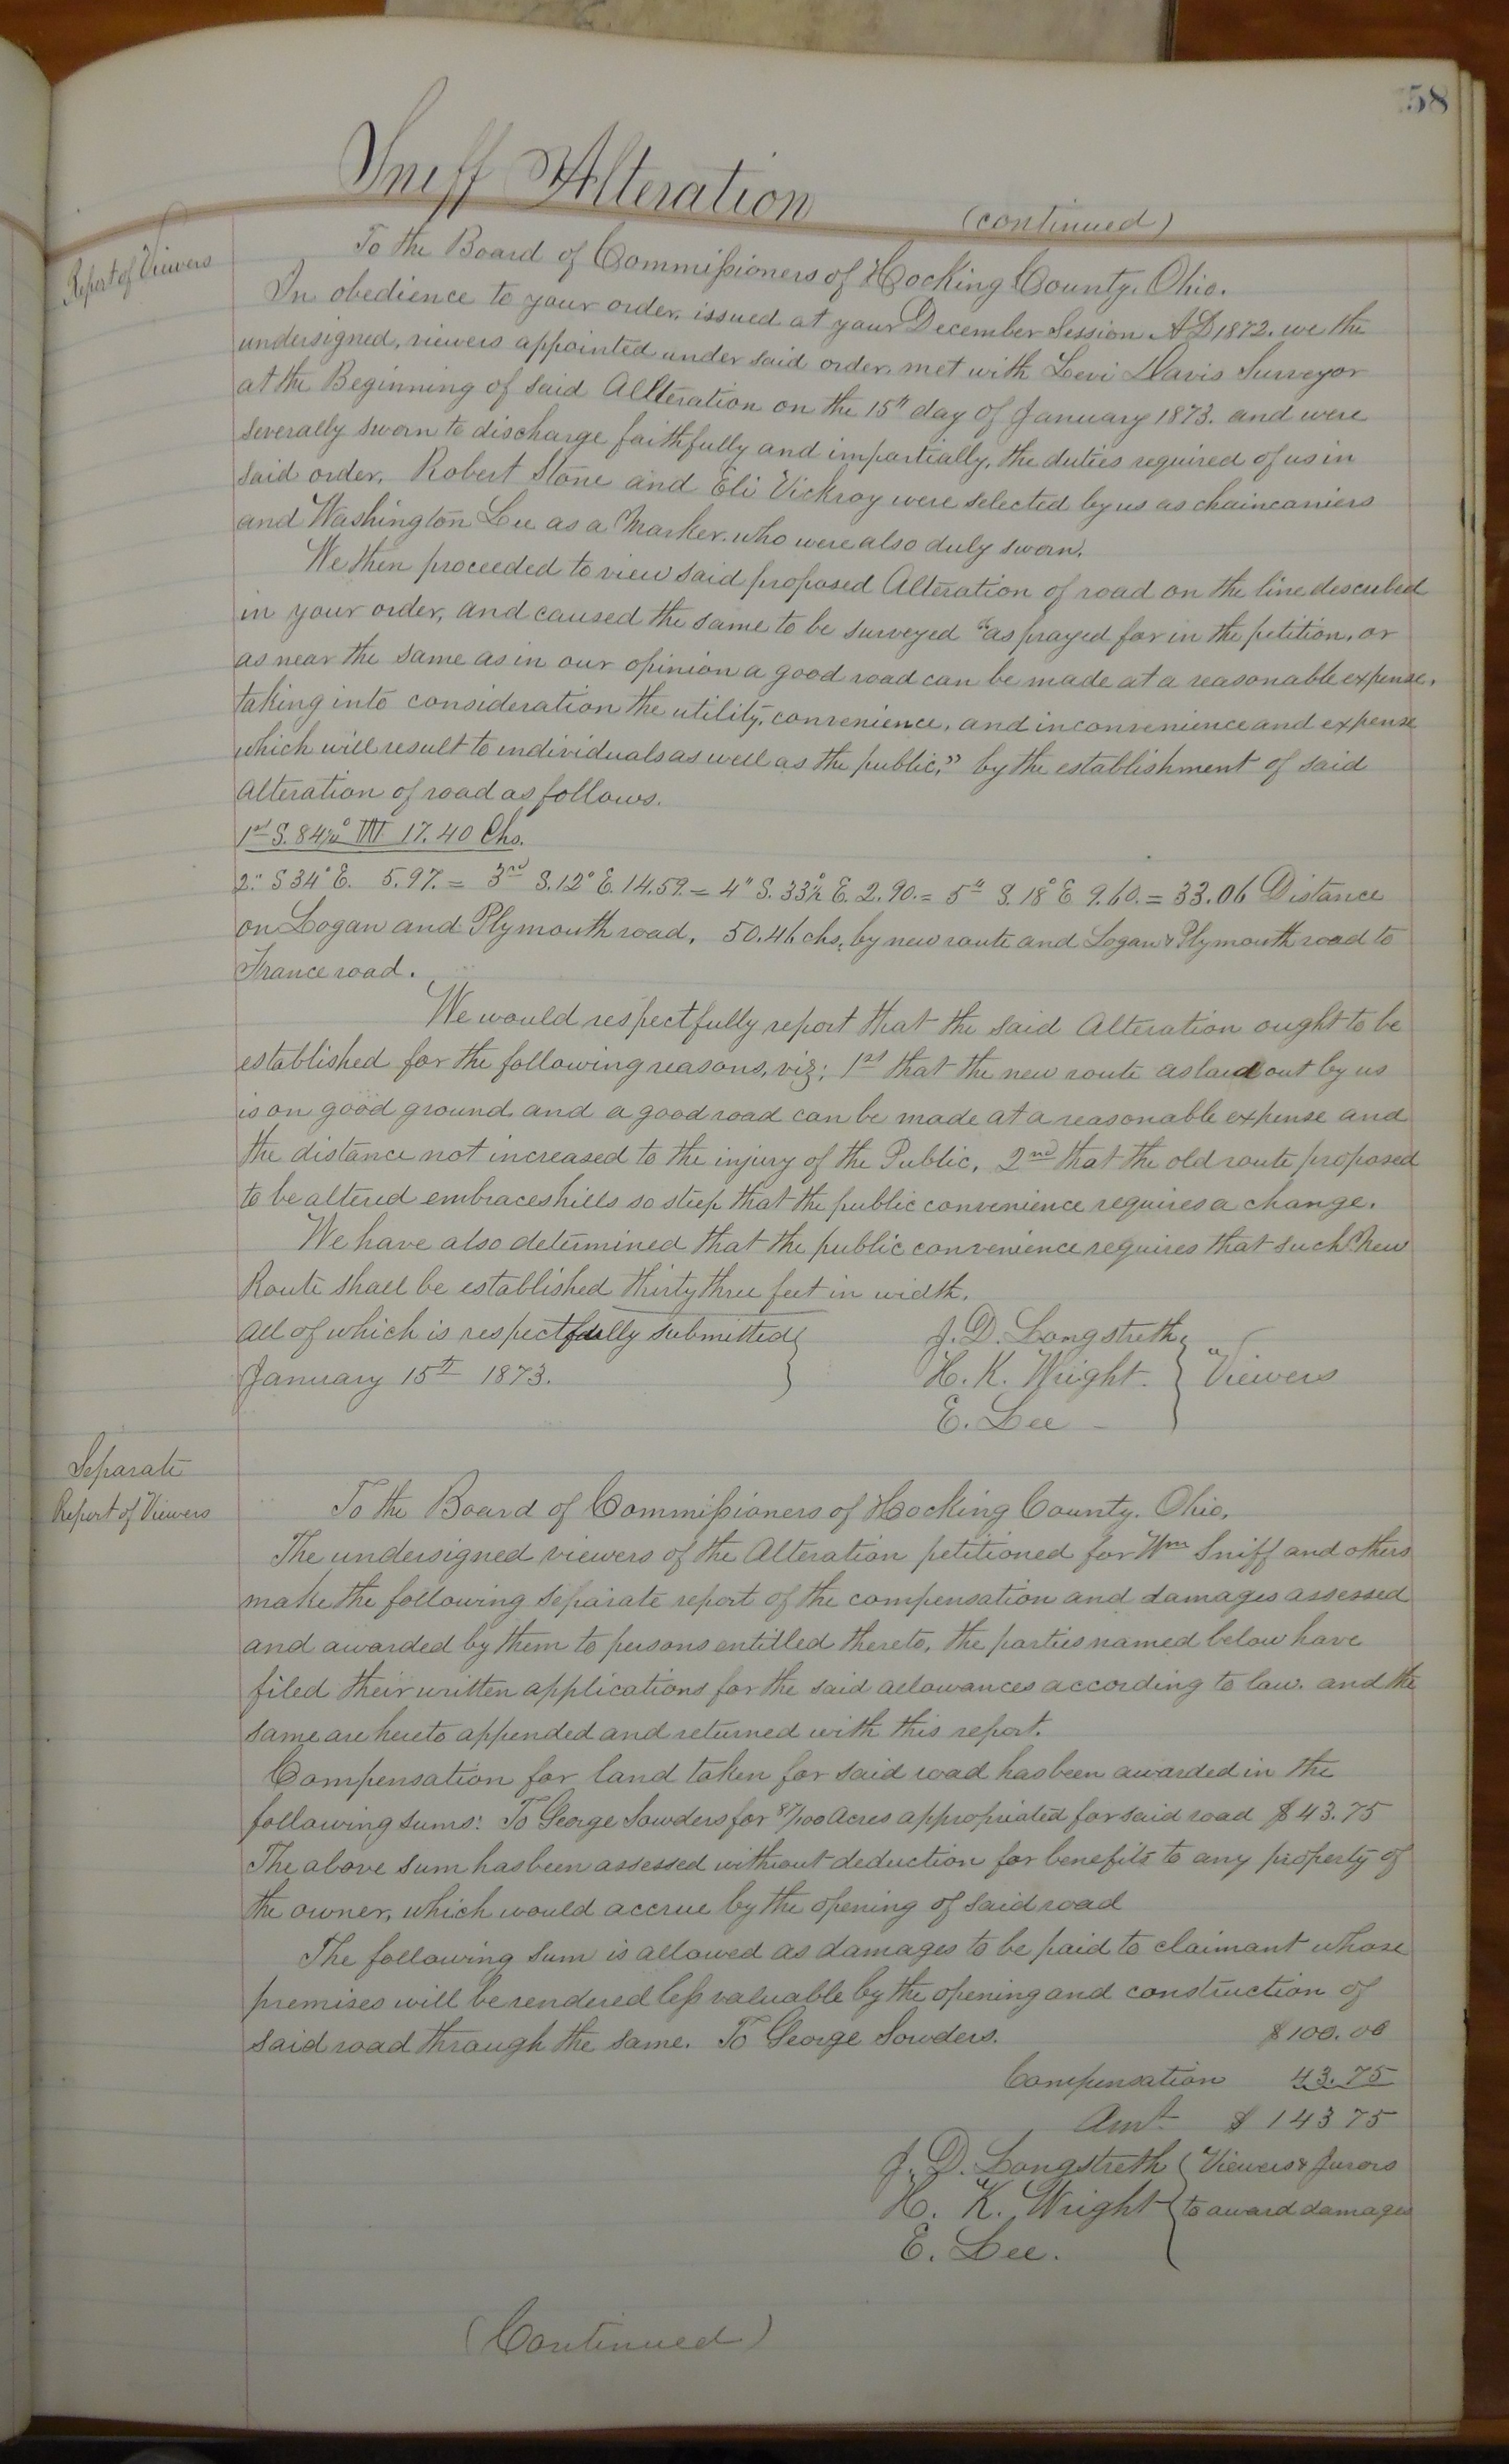 58
Sniff Alteration
(continued)
Report of Viewers
To the Board of Commissioners of Hocking County, Ohio.
In obedience to your order, issued at your December Session A.D 1872. we the
undersigned, viewers appointed under said order, met with Levi Davis Surveyor
at the Beginning of said Allteration on the 15th day of January 1873. and were
severally sworn to discharge faithfully and impartially, the duties required of us in
said order. Robert Stone and Eli Vickroy were selected by us as chaincarriers
and Washington Lee as a Marker. who were also duly sworn.
We then proceeded to view said proposed Alteration of road on the line described
in your order, and caused the same to be surveyed "as prayed for in the petition, or
as near the same as in our opinion a good road can be made at a reasonable expense,
taking into consideration the utility, convenience, and inconvenience and expense
which will result to individuals as well as the public," by the establishment of said
Alteration of road as follows.
1st S. 84½° W 17.40 Chs.
2" S 34° E. 5.97. = 3rd S. 12° E. 14.59. = 4" S. 33½° E. 2.90. = 5th S. 18° E 9.60. = 33.06 Distance
on Logan and Plymouth road, 50.46 chs, by new route and Logan & Plymouth road to
France road.
We would respectfully report that the said Alteration ought to be
established for the following reasons, viz; 1st that the new route as laid out by us
is on good ground and a good road can be made at a reasonable expense and
the distance not increased to the injury of the Public, 2nd that the old route proposed
to be altered embraces hills so steep that the public convenience requires a change.
We have also determined that the public convenience requires that such New
Route shall be established thirty three feet in width.
All of which is respectfully submitted
January 15th 1873.
J. D. Longstreth
H. K. Wright
E. Lee
Viewers
Separate
Report of Viewers
To the Board of Commissioners of Hocking County. Ohio,
The undersigned viewers of the Alteration petitioned for Wm Sniff and others
make the following separate report of the compensation and damages assessed
and awarded by them to persons entitled thereto, the parties named below have
filed their written applications for the said allowances according to law. and the
same are hereto appended and returned with this report.
Compensation for land taken for said road has been awarded in the
following sums: To George Sowders for 87/100 Acres appropriated for said road $43.75
The above sum has been assessed without deduction for benefits to any property of
the owner, which would accrue by the opening of said road
The following sum is allowed as damages to be paid to claimant whose
premises will be rendered less valuable by the opening and construction of
said road through the same. To George Sowders. $100.00
Compensation 43.75
Amt. $ 143 75
J. D. Longstreth
H. K. Wright
E. Lee.
Viewers & Jurors
to award damages
(Continued)